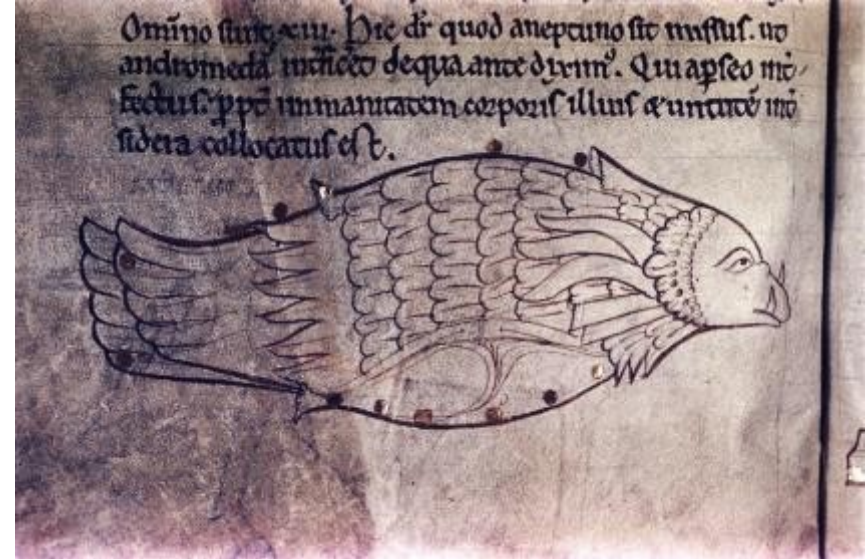 Omīno sunt xiii. Hic dr̄ quod aneptuno sit missus. ut
andromedā int̄ficeet dequa ante dixim⁹. Qui apseo int̄
fectus. ꝓpt̄ inmanitatem corporis illius & uirtutē int̄
sidera collocatus est.